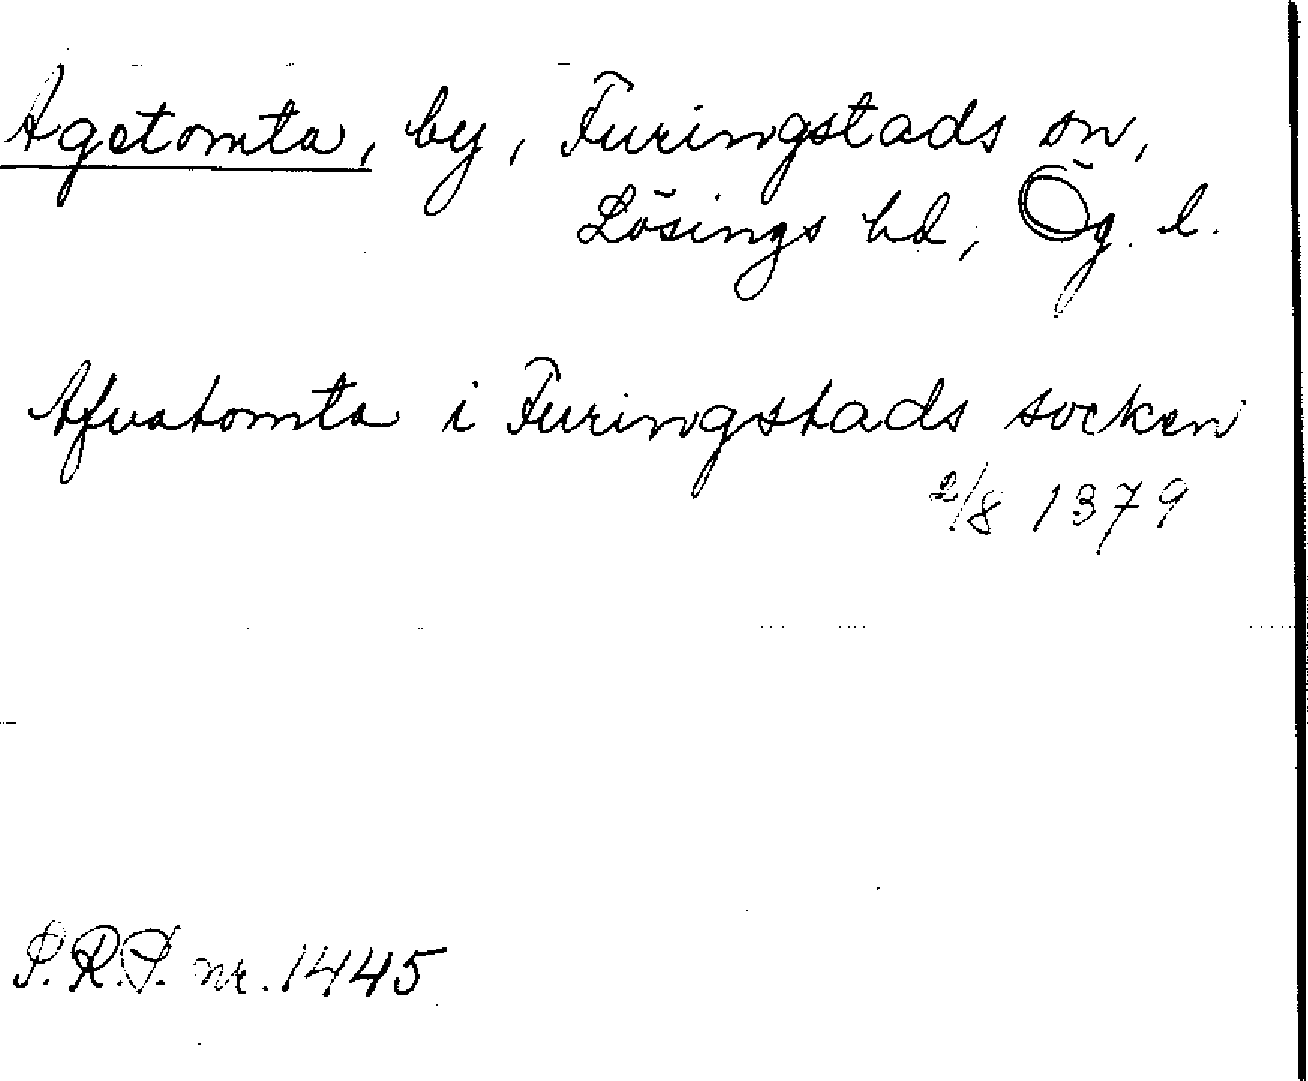 Agetomta, by, Furingstads sn,
Lösings hd, Ög. l.
Afvatomta i Furingstads socken
2/8 1379
S.R.P. nr. 1445